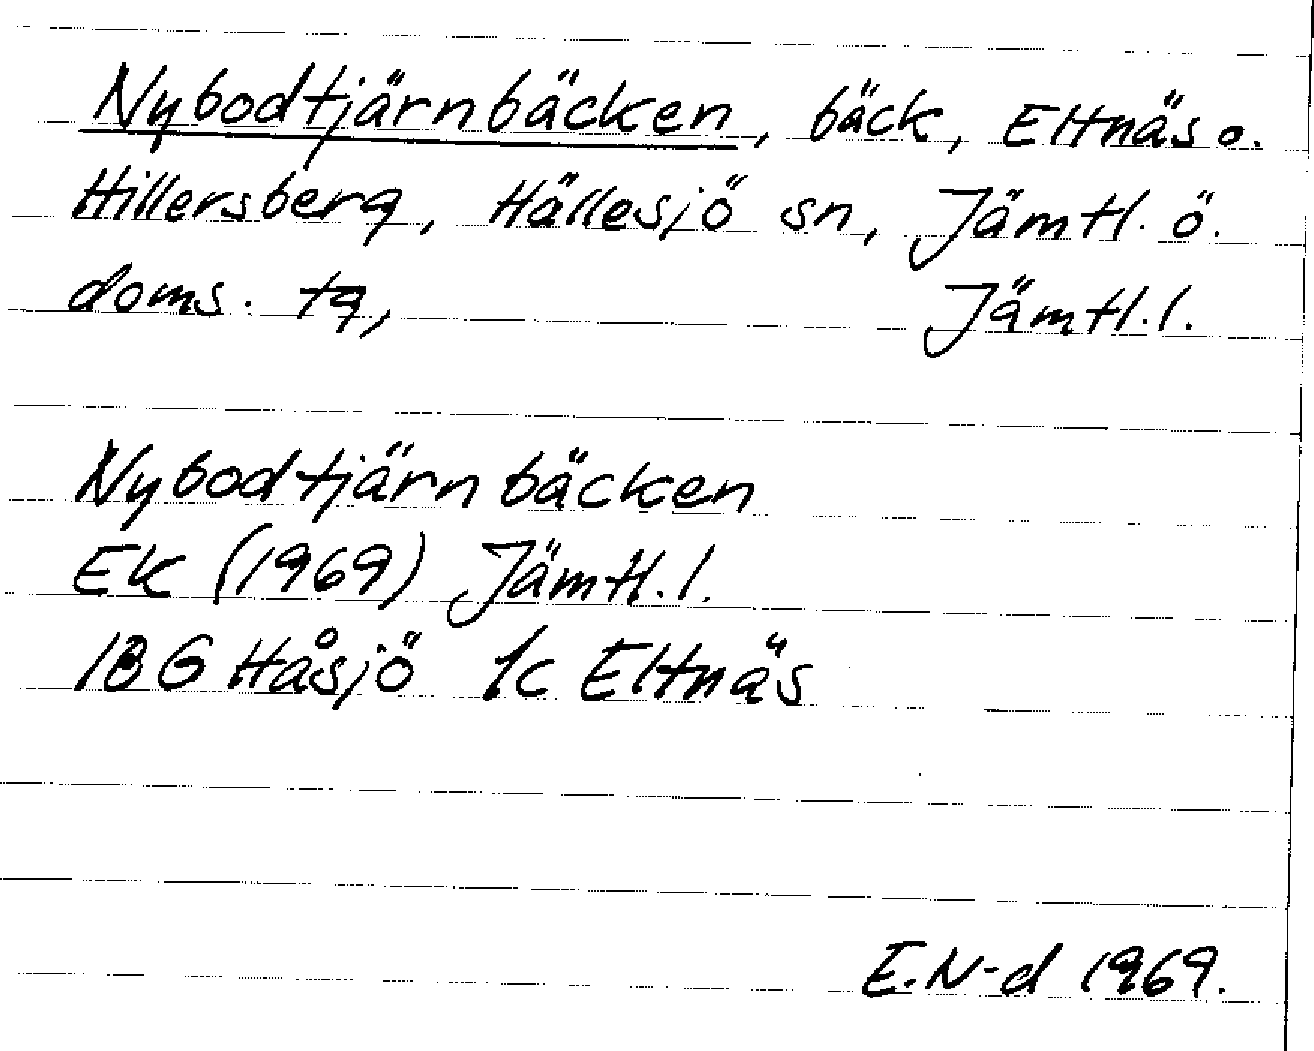 Nybodtjärnbäcken, bäck, Eltnäs o.
Hillersberg, Hällesjö sn, Jämtl. ö.
doms. tg, Jämtl. l.
Nybodtjärnbäcken
EK (1969) Jämtl. l.
18 G Håsjö 1c Eltnäs
E. N-d 1969.